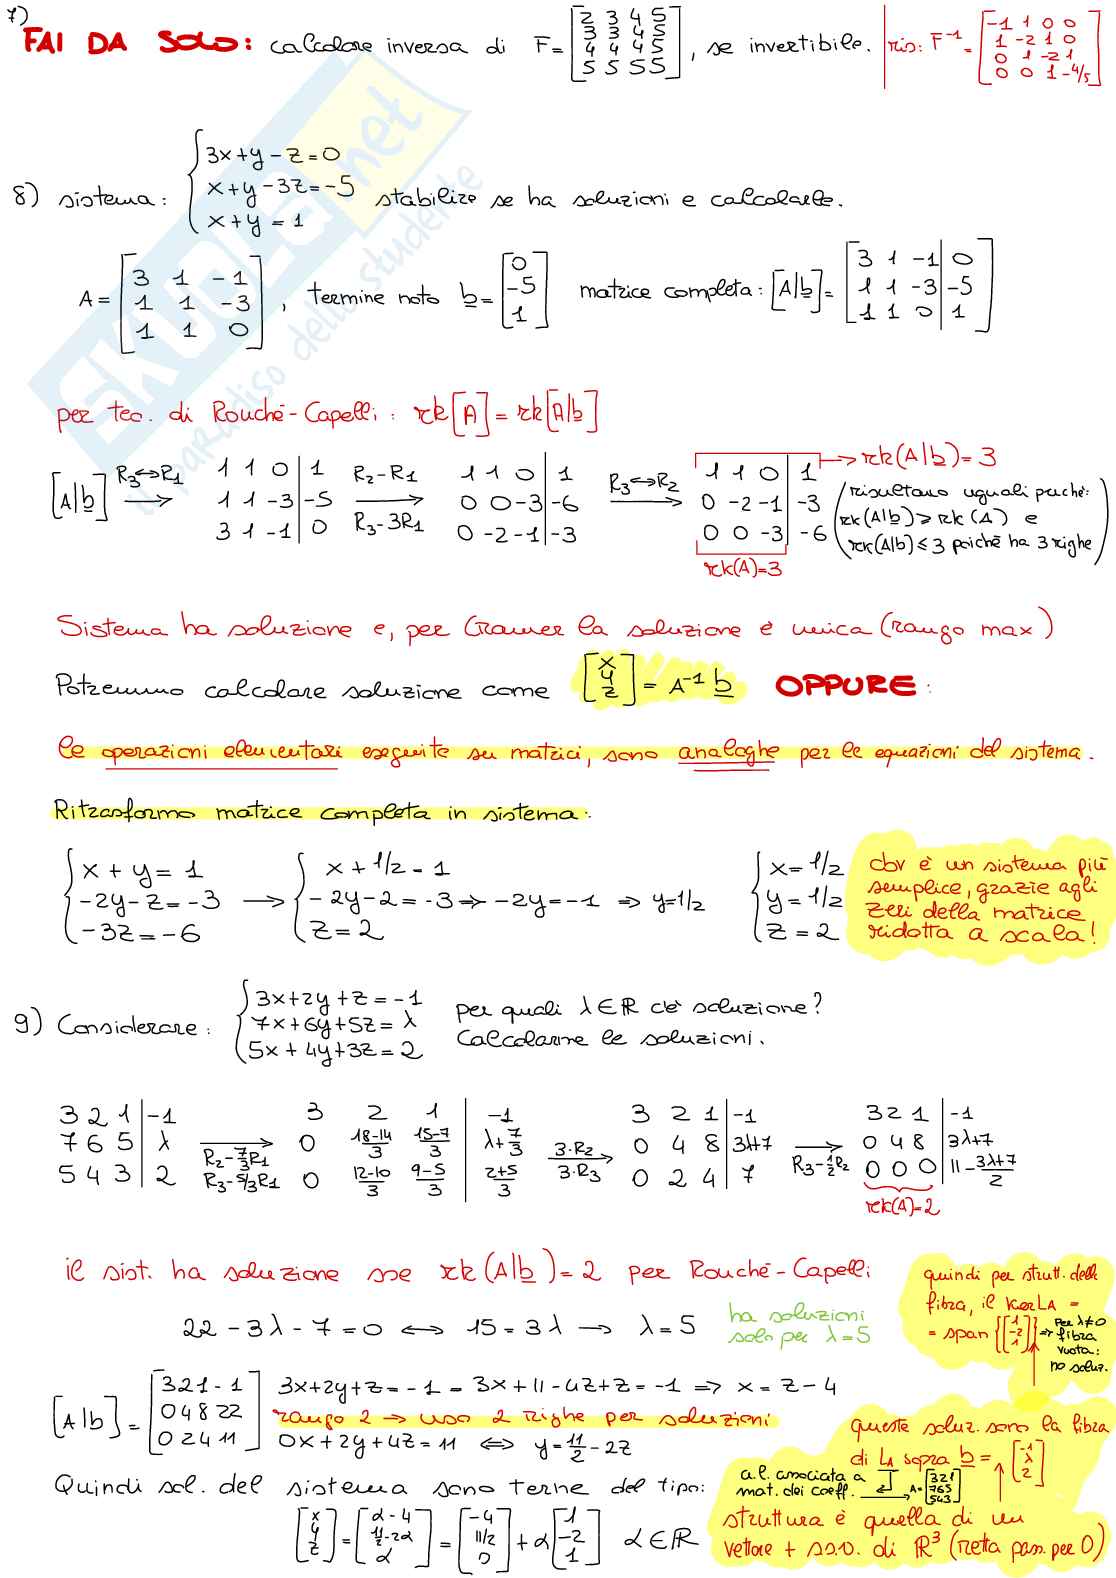 7)
FAI DA SOLO: calcolare inversa di F = [2 3 4 5; 3 3 4 5; 4 4 4 5; 5 5 5 5], se invertibile. ris: F⁻¹ = [-1 1 0 0; 1 -2 1 0; 0 1 -2 1; 0 0 1 -4/5]
SKUOLA.net
il paradiso dello studente
8) sistema: { 3x+y-z=0
x+y-3z=-5 stabilire se ha soluzioni e calcolarle.
x+y=1
A = [3 1 -1; 1 1 -3; 1 1 0], termine noto b = [0; -5; 1] matrice completa: [A|b] = [3 1 -1 | 0; 1 1 -3 | -5; 1 1 0 | 1]
per teo. di Rouché-Capelli: rk[A] = rk[A|b]
[A|b] R3↔R1 → 1 1 0 | 1; 1 1 -3 | -5; 3 1 -1 | 0 R2-R1 R3-3R1 → 1 1 0 | 1; 0 0 -3 | -6; 0 -2 -1 | -3 R3↔R2 → 1 1 0 | 1; 0 -2 -1 | -3; 0 0 -3 | -6
→ rk(A|b) = 3
(risultano uguali perché:
rk(A|b) ⩾ rk(A) e
rk(A|b) ≤ 3 poiché ha 3 righe)
rk(A)=3
Sistema ha soluzione e, per Cramer la soluzione è unica (rango max)
Potremmo calcolare soluzione come [x; y; z] = A⁻¹ b OPPURE:
le operazioni elementari eseguite su matrici, sono analoghe per le equazioni del sistema.
Ritrasformo matrice completa in sistema:
{ x+y=1 { x+1/2=1 { x=1/2
-2y-z=-3 → -2y-2=-3 ⇒ -2y=-1 ⇒ y=1/2 y=1/2
-3z=-6 z=2 z=2
obv è un sistema più
semplice, grazie agli
zeri della matrice
ridotta a scala!
9) Considerare: { 3x+2y+z=-1
7x+6y+5z=λ
5x+4y+3z=2
per quali λ∈ℝ c'è soluzione?
Calcolarne le soluzioni.
3 2 1 | -1; 7 6 5 | λ; 5 4 3 | 2 R2-7/3R1 R3-5/3R1 → 3 2 1 | -1; 0 18-14/3 15-7/3 | λ+7/3; 0 12-10/3 9-5/3 | 2+5/3 3·R2 3·R3 → 3 2 1 | -1; 0 4 8 | 3λ+7; 0 2 4 | 7 R3-1/2R2 → 3 2 1 | -1; 0 4 8 | 3λ+7; 0 0 0 | 11-3λ+7/2
rk(A)=2
il sist. ha soluzione sse rk(A|b)=2 per Rouché-Capelli
22-3λ-7=0 ⟺ 15=3λ → λ=5
ha soluzioni
solo per λ=5
quindi per strutt. della
fibra, il Ker LA =
= span {[1; -2; 1]} ⇒ Per λ≠0
fibra
vuota:
no soluz.
[A|b] = [3 2 1 -1; 0 4 8 22; 0 2 4 11] 3x+2y+z=-1 = 3x+11-4z+z=-1 ⇒ x=z-4
rango 2 → uso 2 righe per soluzioni
0x+2y+4z=11 ⟺ y=11/2-2z
Quindi sol. del sistema sono terne del tipo:
[x; y; z] = [α-4; 11/2-2α; α] = [-4; 11/2; 0] + α[1; -2; 1] α∈ℝ
queste soluz. sono la fibra
di LA sopra b = [-1; λ; 2]
a.l. associata a
mat. dei coeff. → A=[3 2 1; 7 6 5; 5 4 3]
struttura è quella di un
vettore + s.s.v. di ℝ³ (retta pass. per 0)